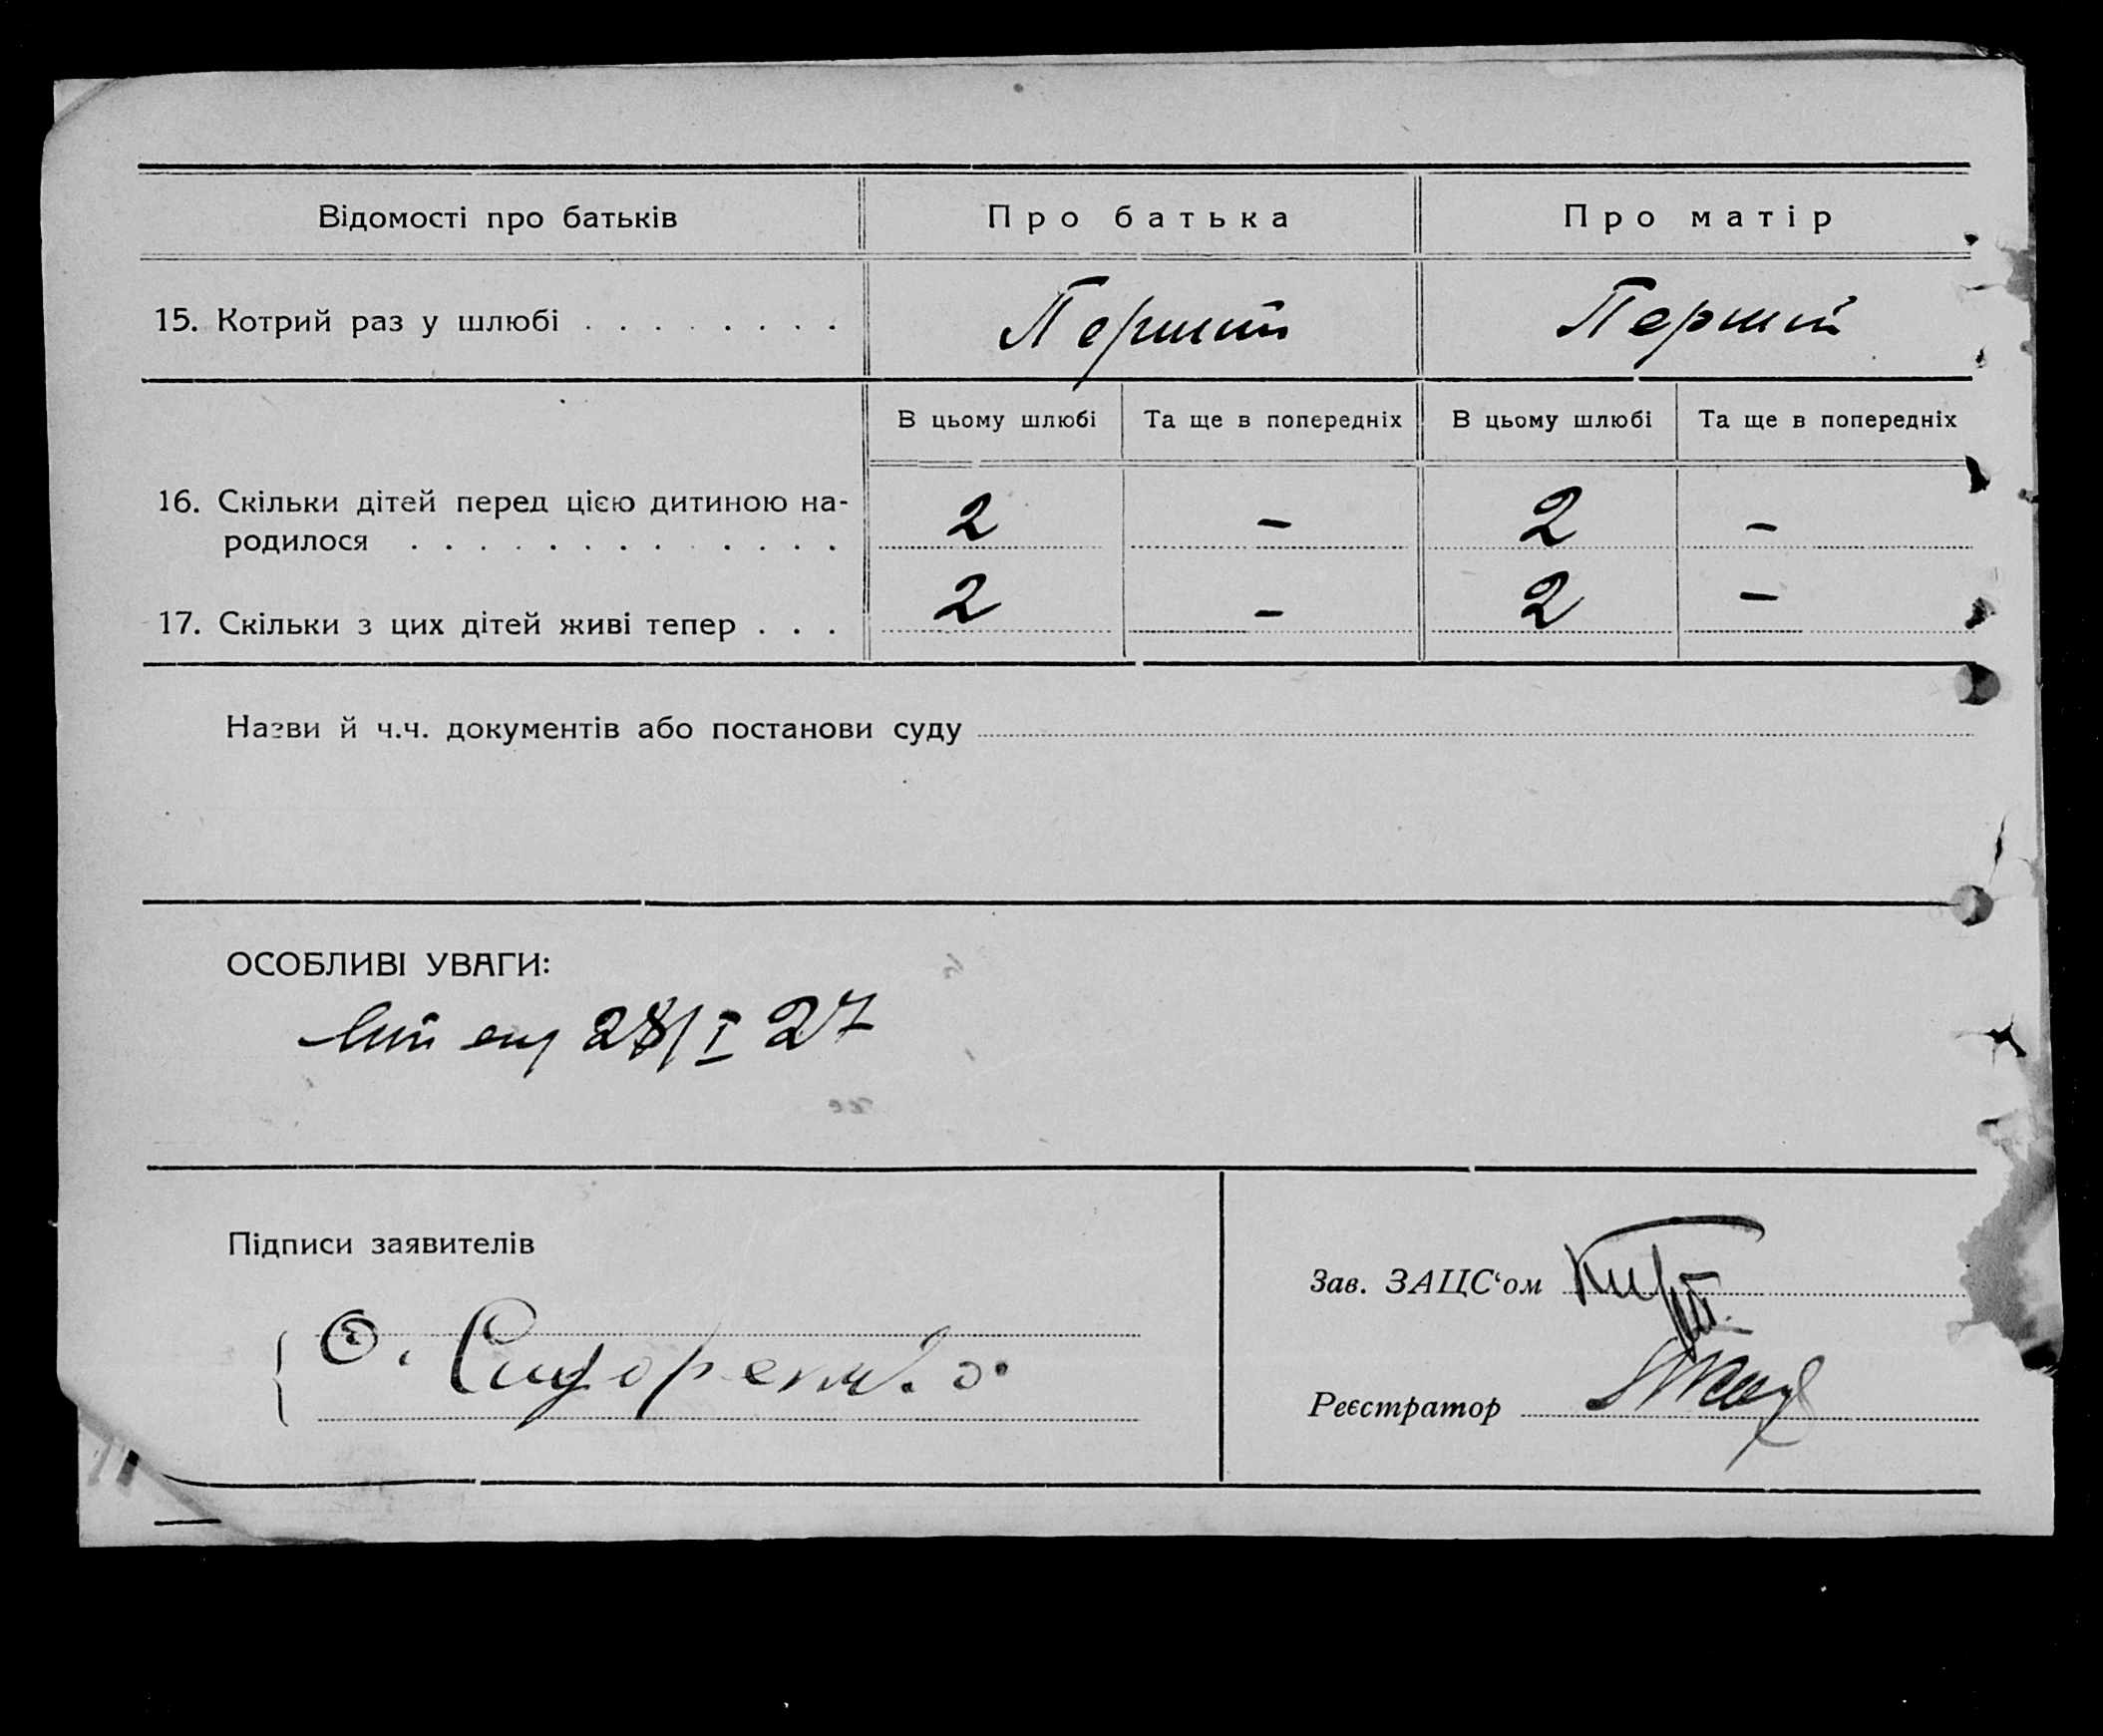 Відомості про батьків Про батька Про матір
15. Котрий раз у шлюбі . . . . . . . . Перший Перший
В цьому шлюбі Та ще в попередніх В цьому шлюбі Та ще в попередніх
16. Скільки дітей перед цією дитиною на-
родилося . . . . . . . . . . . . . . 2 – 2 –
17. Скільки з цих дітей живі тепер . . . 2 – 2 –
Назви й ч.ч. документів або постанови суду
ОСОБЛИВІ УВАГИ:
28/I 27
Підписи заявителів
Зав. ЗАЦС‘ом
О. Сидоренко
Реєстратор